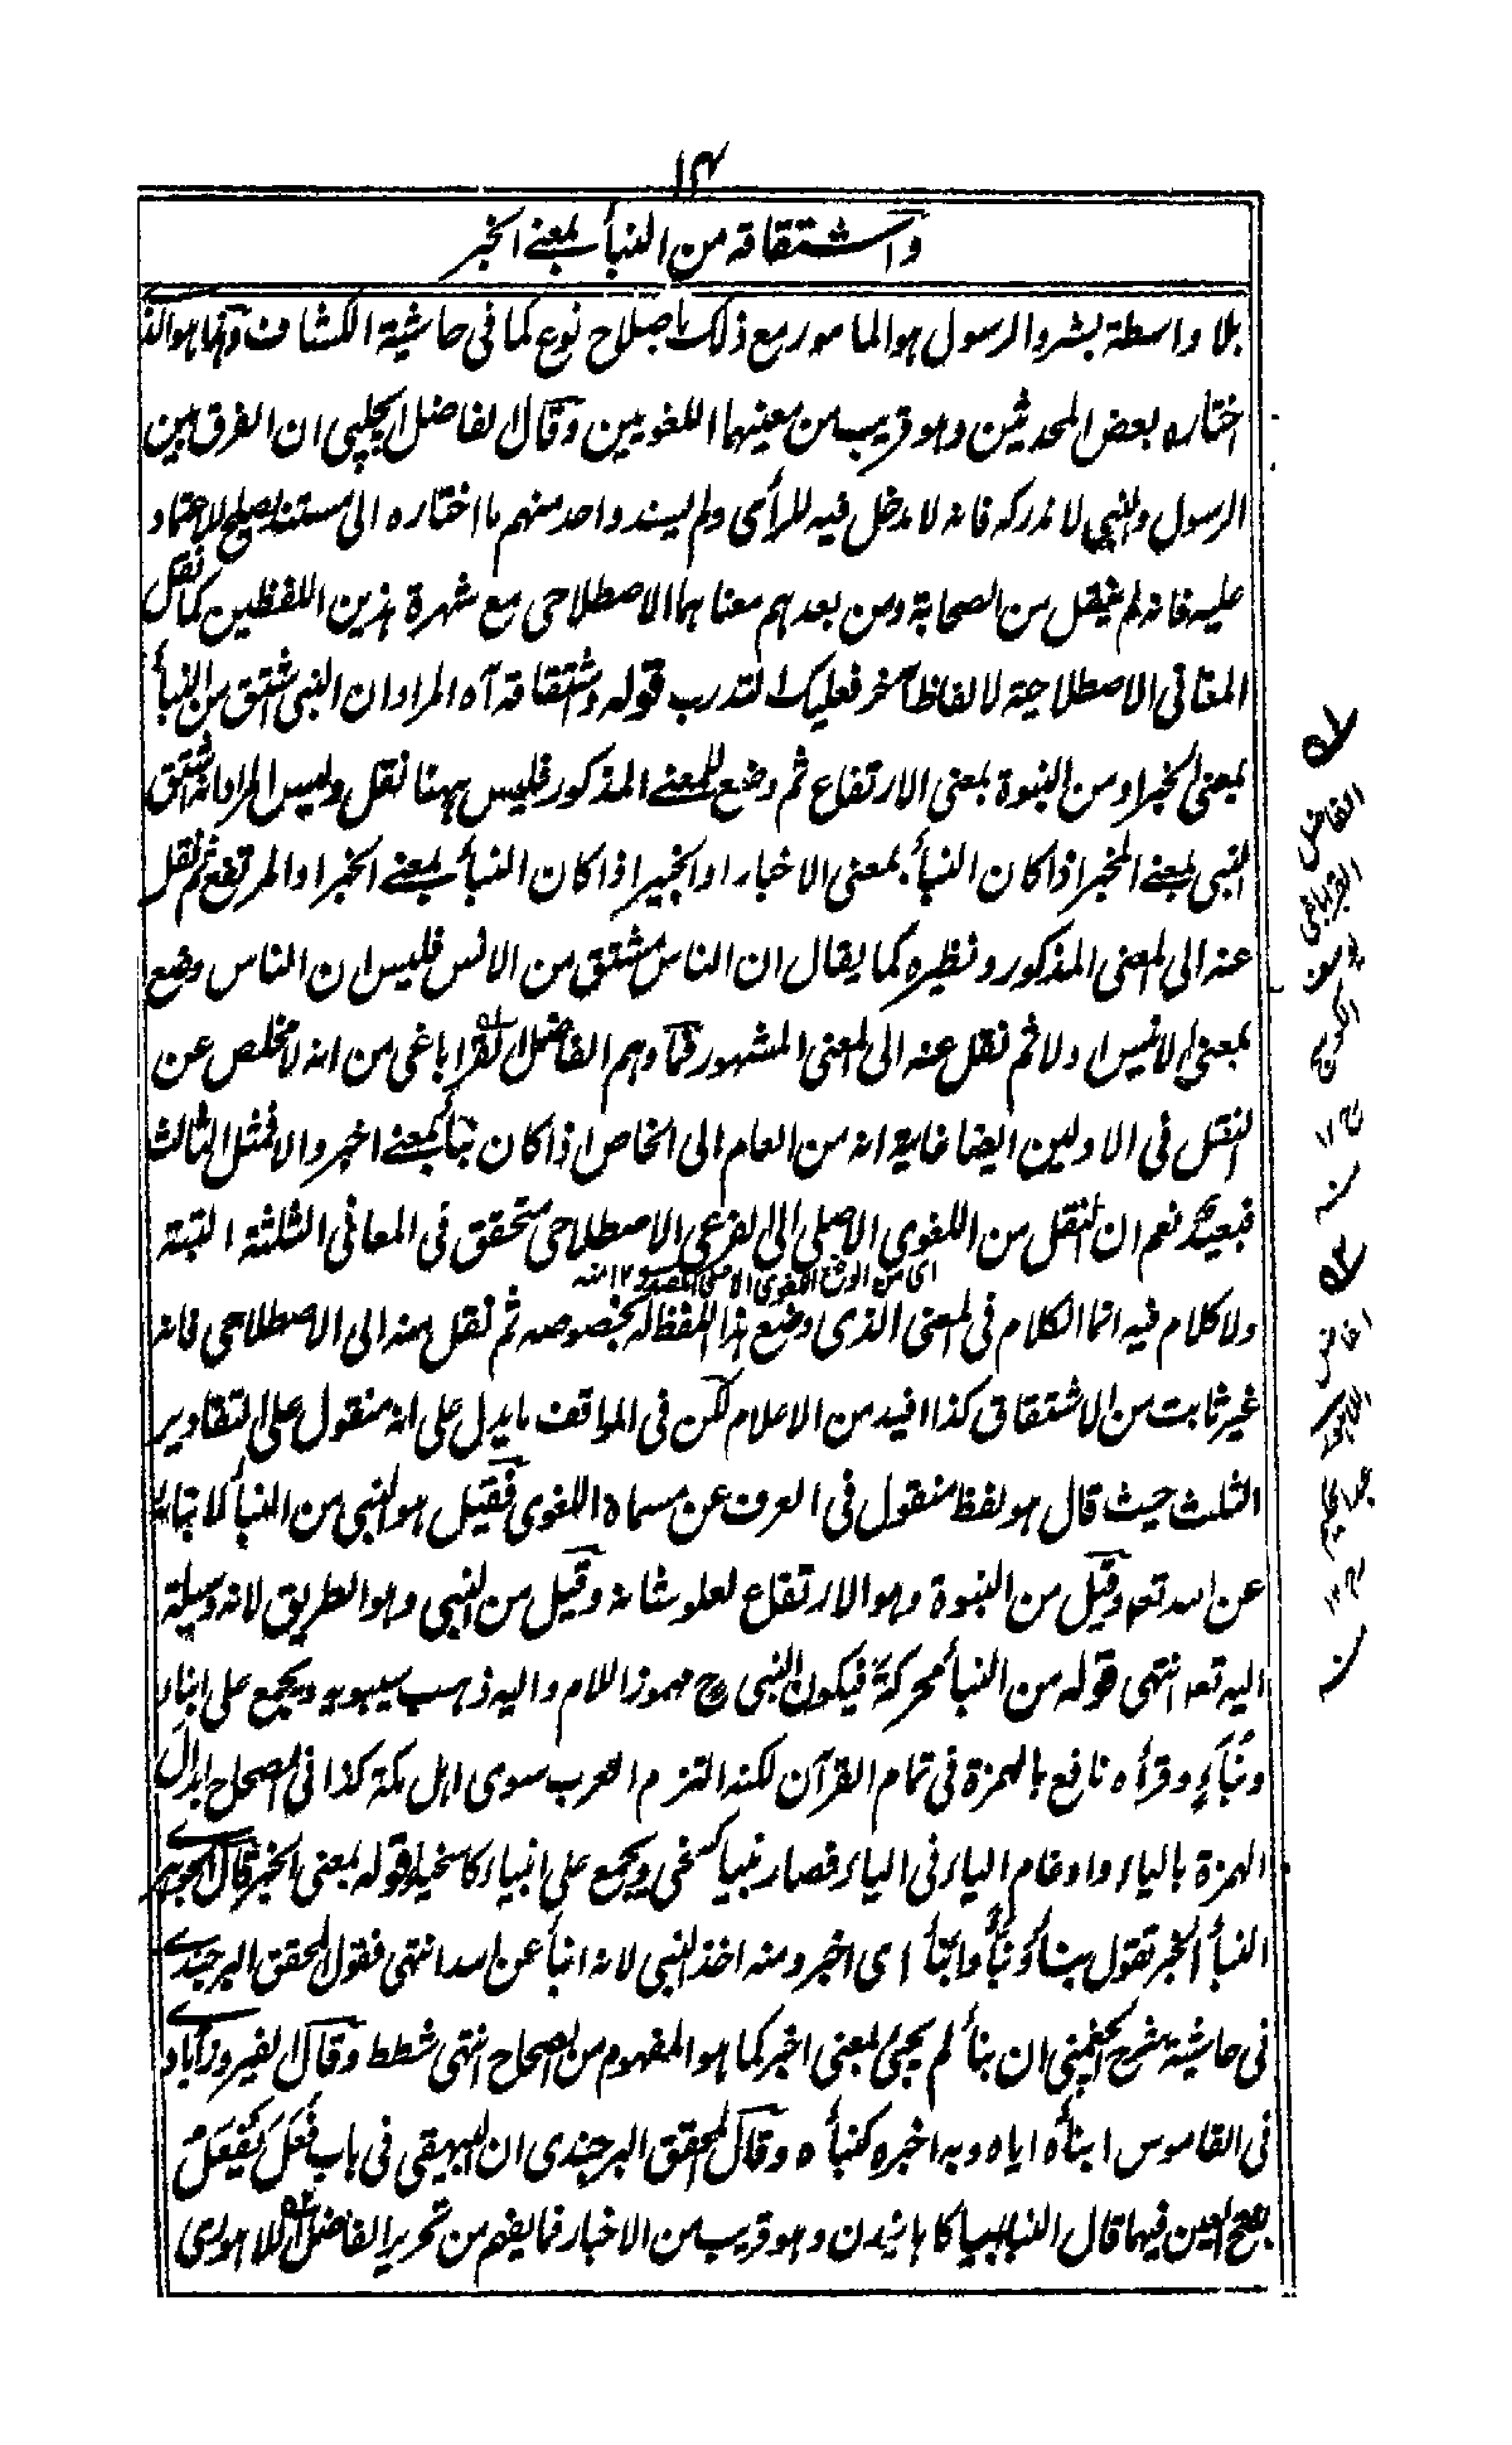 ١٤
واشتقاقه من النبأ بمعنى الخبر
بلا واسطة بشر والرسول هو المامور مع ذلك باصلاح نوع كما فى حاشية الكشاف ومنها هو الذى
اختاره بعض المحدثين وهو قريب من معنيهما اللغويين وقال الفاضل الچلپى ان الفرق بين
الرسول والنبى لا ندركه فانه لا مدخل فيه للرأى ولم يسند واحد منهم ما اختاره الى مستند يصلح للاعتماد
عليه فانه لم ينقل من الصحابة ومن بعدهم معناهما الاصطلاحى مع شهرة هذين اللفظين كما نقل
المعانى الاصطلاحية لالفاظ آخر فعليك التدرب قوله واشتقاقه آه المراد ان النبى اشتق من النبأ
بمعنى الخبر او من النبوة بمعنى الارتفاع ثم وضع للمعنى المذكور فليس ههنا نقل وليس المراد انه اشتق
النبى بمعنى المخبر اذا كان النبأ بمعنى الاخبار او الخبير اذا كان النبأ بمعنى الخبر او المرتفع ثم نقل
عنه الى المعنى المذكور ونظيره كما يقال ان الناس مشتق من الانس فليس ان الناس وضع
بمعنى الانيس اولا ثم نقل عنه الى المعنى المشهور فما وهم الفاضل القراباغى من انه لا مخلص عن
النقل فى الاولين ايضا غاية انه من العام الى الخاص اذا كان نبأ بمعنى اخبر والا فمثل الثالث
فبعيد نعم ان النقل من اللغوى الاصلى الى الفرعى الاصطلاحى متحقق فى المعانى الثلثة البتة
اى من الوضع اللغوى الاصلى ١٢ منه
ولا كلام فيه انما الكلام فى المعنى الذى وضع هذا اللفظ له بخصوصه ثم نقل منه الى الاصطلاحى فانه
غير ثابت من الاشتقاق كذا افيد من الاعلام لكن فى المواقف ما يدل على انه منقول على التقادير
الثلث حيث قال هو لفظ منقول فى العرف عن مسماه اللغوى فقيل هو النبى من النبأ لانبائه
عن الله تعه وقيل من النبوة وهو الارتفاع لعلو شانه وقيل من النبى وهو الطريق لانه وسيلة
اليه تعه انتهى قوله من النبأ محركة فيكون النبى ح مهموز اللام واليه ذهب سيبويه ويجمع على انباء
ونُبَآءٍ وقرأه نافع بالهمزة فى تمام القرآن لكنه التزم العرب سوى اهل مكة كذا فى الصحاح ابدال
الهمزة بالياء وادغام الياء فى الياء فصار نبيا كسخى ويجمع على انبياء كاسخياء قوله بمعنى الخبر قال الجوهرى
النبأ الخبر تقول نبأ ونبّأ وانبأ اى اخبر ومنه اخذ النبى لانه انبأ عن الله انتهى فقول المحقق البرجندى
فى حاشية شرح الچغمينى ان نبأ لم يجئ بمعنى اخبر كما هو المفهوم من الصحاح انتهى شطط وقال الفيروزآبادى
فى القاموس انبأه اياه وبه اخبره كنبأه وقال المحقق البرجندى ان البيهقى فى باب فَعَلَ يَفْعَلُ
بفتح العين فيهما قال النبأ اگاهانيدن وهو قريب من الاخبار فما يفهم من تحرير الفاضل اللاهورى
الفاضل
القراباغى
١٢ منه
عبد الحكيم
١٢ منه